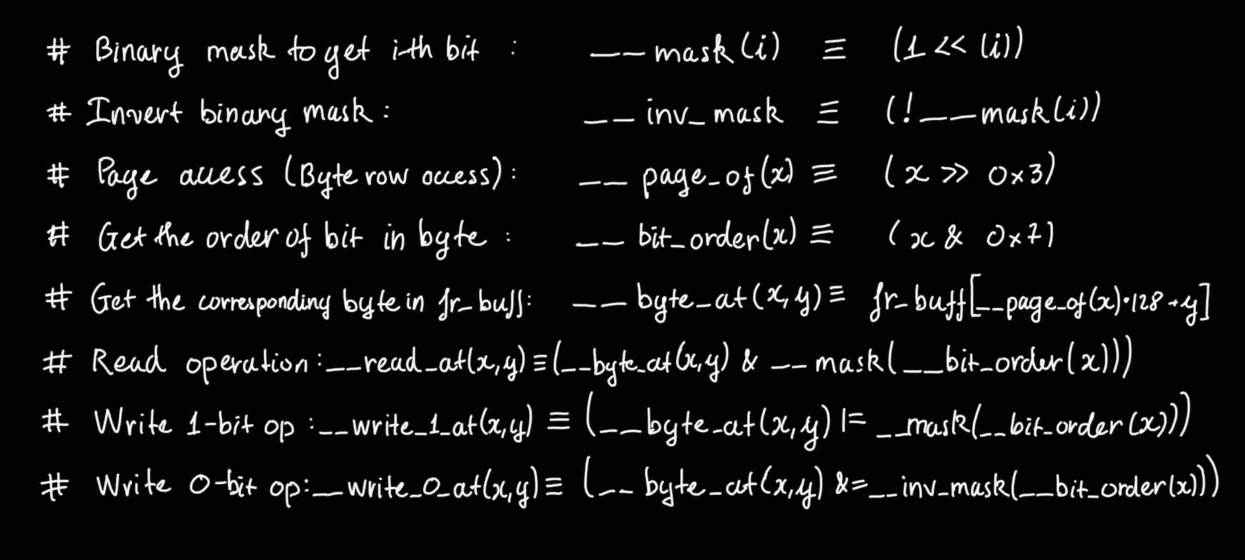 # Binary mask to get i-th bit : __mask(i) ≡ (1 << (i))
# Invert binary mask : __inv_mask ≡ (!__mask(i))
# Page access (Byte row access) : __page_of(x) ≡ (x >> 0x3)
# Get the order of bit in byte : __bit_order(x) ≡ (x & 0x7)
# Get the corresponding byte in fr_buff: __byte_at(x,y) ≡ fr_buff[__page_of(x)·128+y]
# Read operation :__read_at(x,y) ≡ (__byte_at(x,y) & __mask(__bit_order(x)))
# Write 1-bit op :__write_1_at(x,y) ≡ (__byte_at(x,y) |= __mask(__bit_order(x)))
# Write 0-bit op:__write_0_at(x,y) ≡ (__byte_at(x,y) &= __inv_mask(__bit_order(x)))